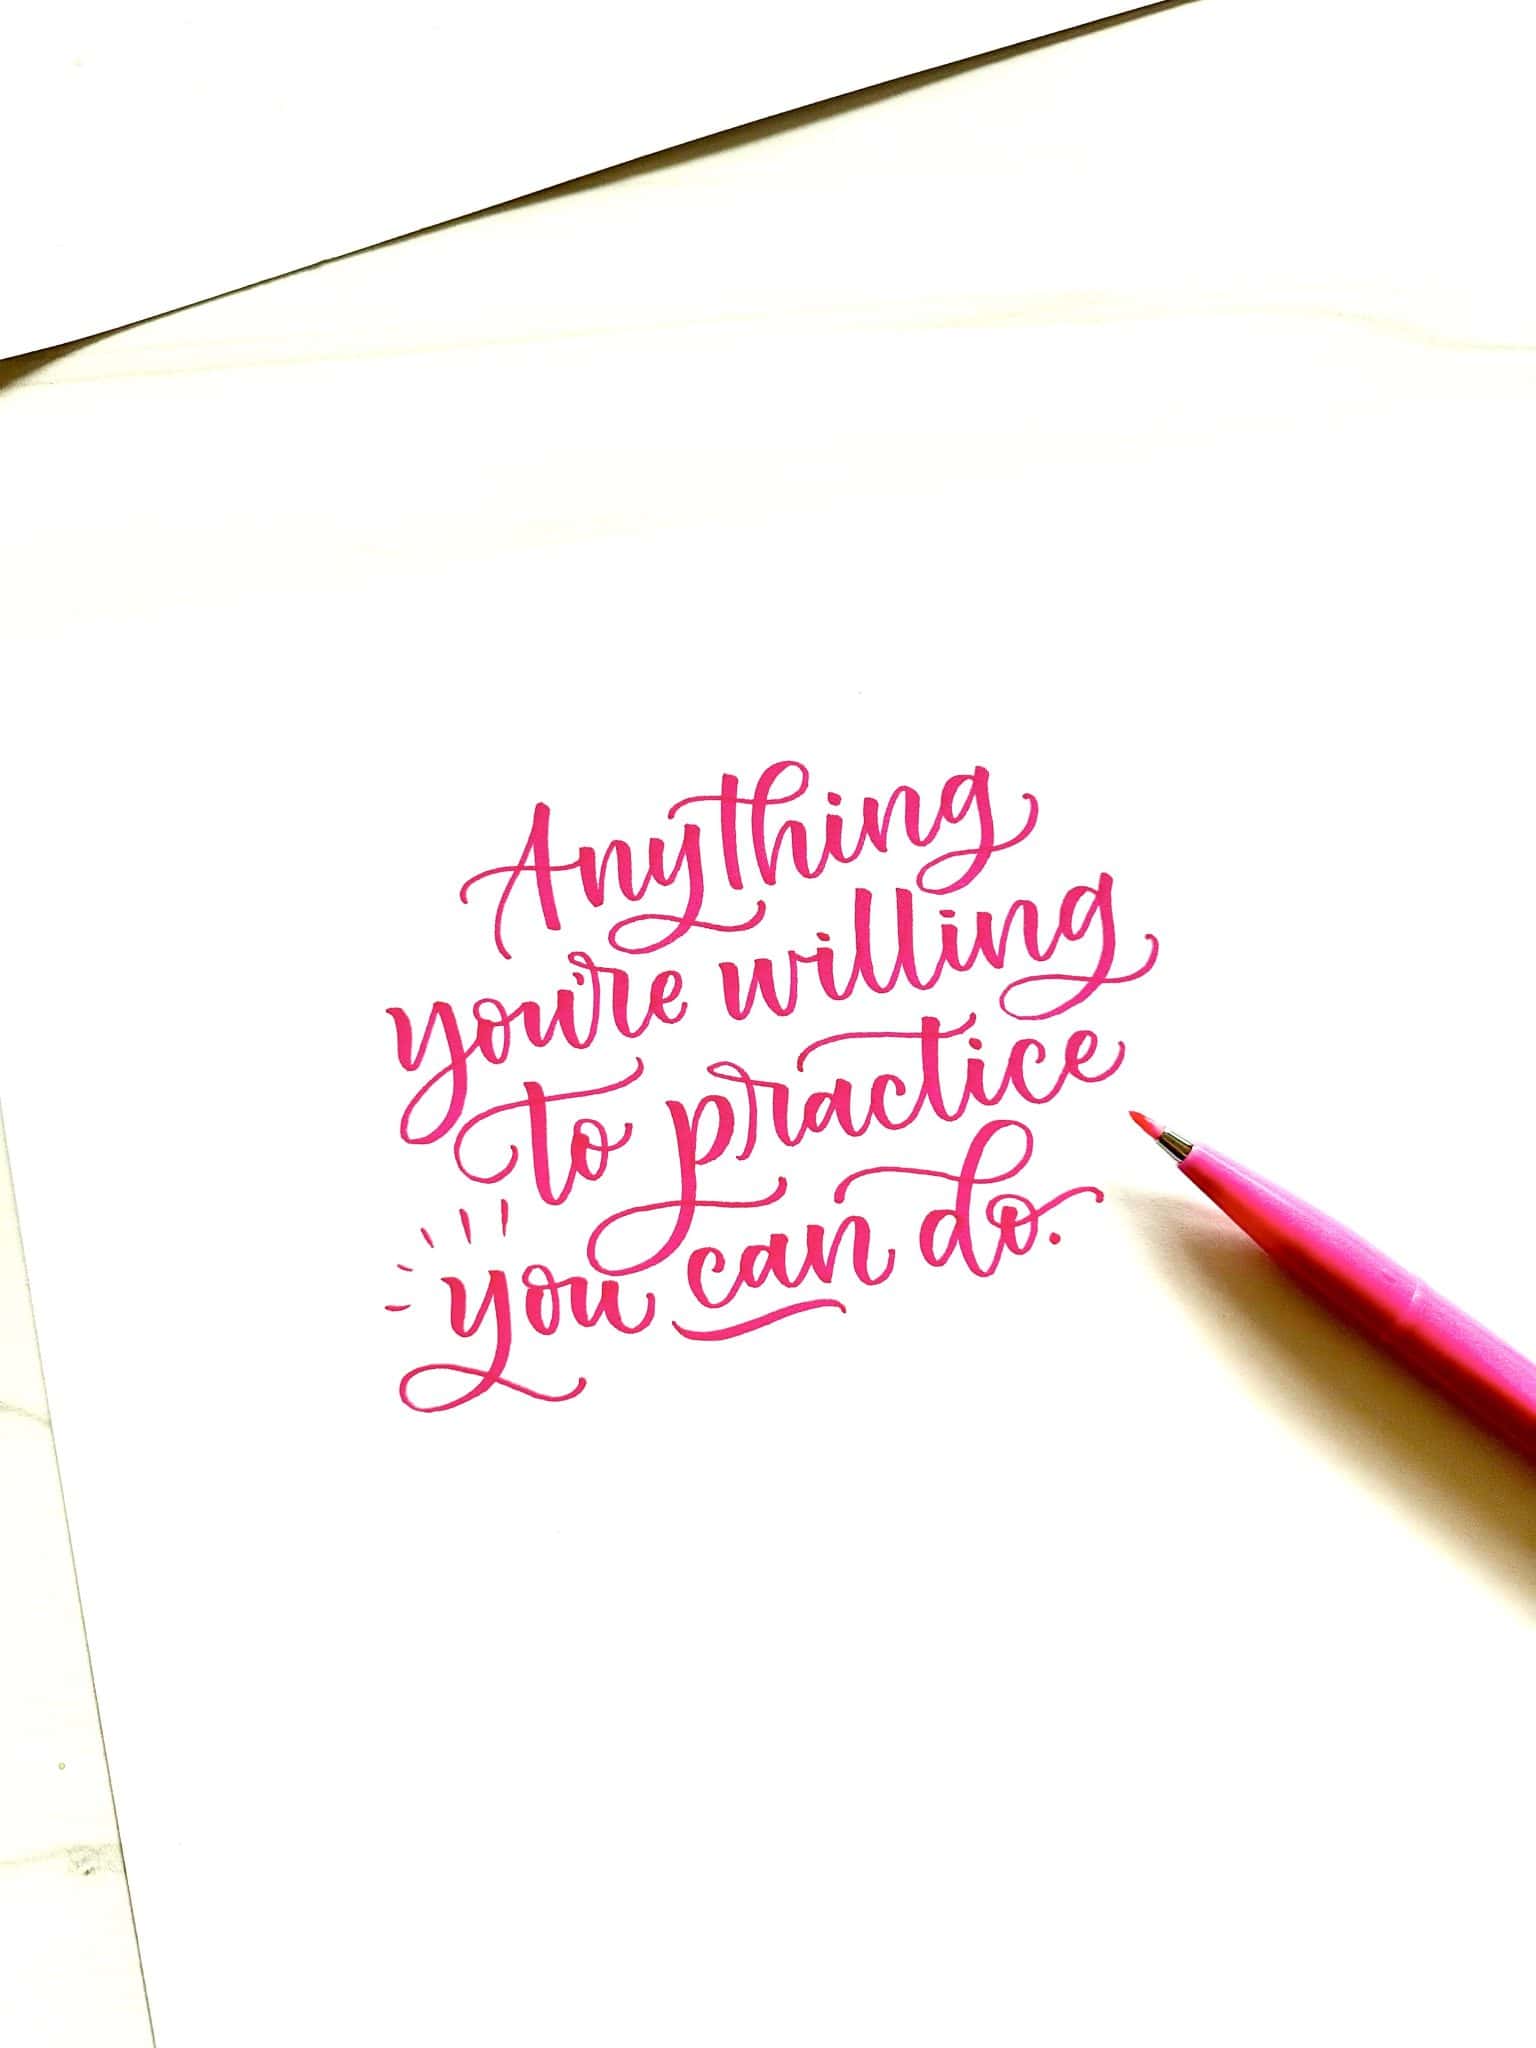 Anything
you're willing
to practice
you can do.